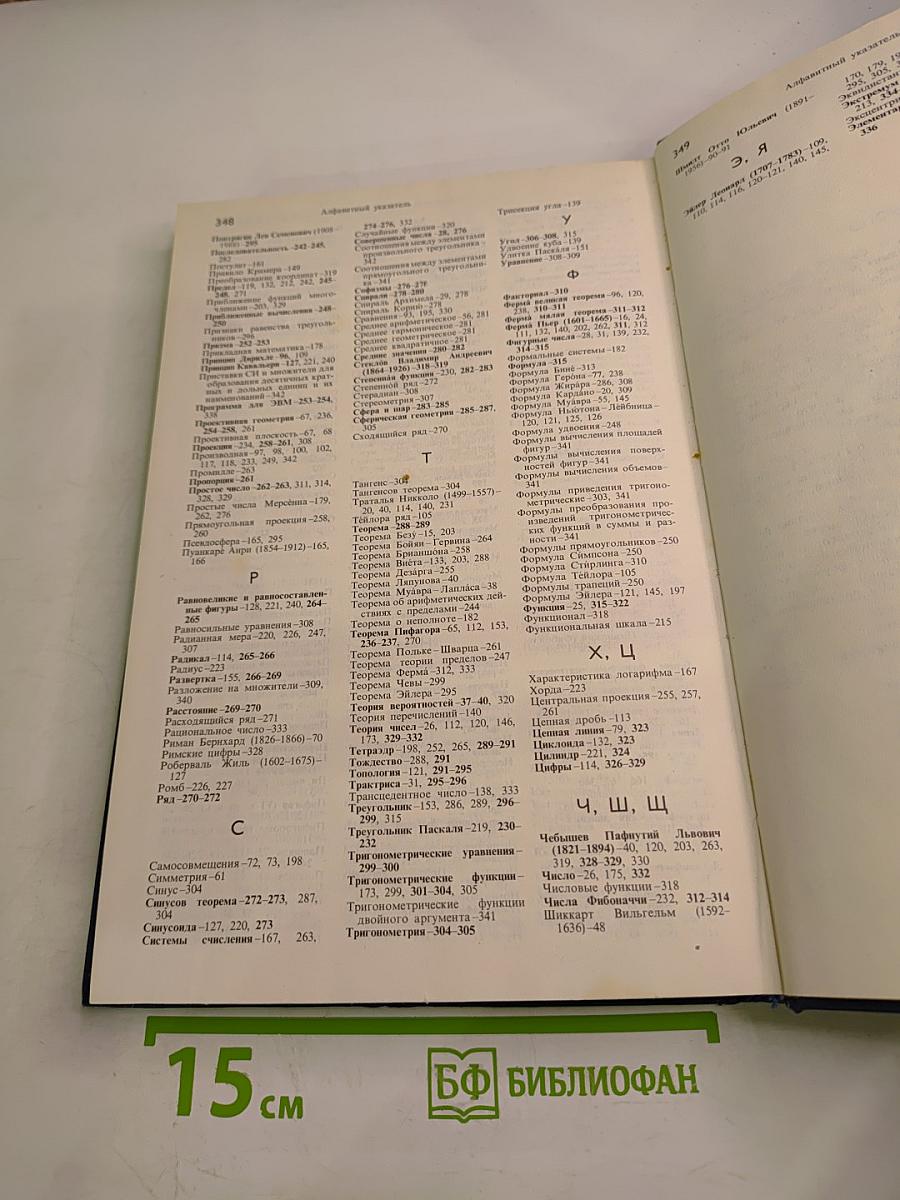 348
Алфавитный указатель
Понтрягин Лев Семенович (1908–
1988)–295
Последовательность–242–245,
282
Постулат–161
Правило Крамера–149
Преобразование координат–319
Предел–119, 132, 212, 242, 245–
248, 271
Приближение функций много-
членами–203, 329
Приближенные вычисления–248–
250
Признаки равенства треуголь-
ников–296
Призма–252–253
Прикладная математика–178
Принцип Дирихле–96, 109
Принцип Кавальери–127, 221, 240
Приставки СИ и множители для
образования десятичных крат-
ных и дольных единиц и их
наименований–342
Программа для ЭВМ–253–254,
338
Проективная геометрия–67, 236,
254–258, 261
Проективная плоскость–67, 68
Проекция–234, 258–261, 308
Производная–97, 98, 100, 102,
117, 118, 233, 249, 342
Промилле–263
Пропорция–261
Простое число–262–263, 311, 314,
328, 329
Простые числа Мерсенна–179,
262, 276
Прямоугольная проекция–258,
260
Псевдосфера–165, 295
Пуанкаре Анри (1854–1912)–165,
166
Р
Равновеликие и равносоставлен-
ные фигуры–128, 221, 240, 264–
265
Равносильные уравнения–308
Радианная мера–220, 226, 247,
307
Радикал–114, 265–266
Радиус–223
Развертка–155, 266–269
Разложение на множители–309,
340
Расстояние–269–270
Расходящийся ряд–271
Рациональное число–333
Риман Бернхард (1826–1866)–70
Римские цифры–328
Роберваль Жиль (1602–1675)–
127
Ромб–226, 227
Ряд–270–272
С
Самосовмещения–72, 73, 198
Симметрия–61
Синус–304
Синусов теорема–272–273, 287,
304
Синусоида–127, 220, 273
Системы счисления–167, 263,
274–276, 332
Случайные функции–320
Совершенные числа–28, 276
Соотношения между элементами
произвольного треугольника–
342
Соотношения между элементами
прямоугольного треугольни-
ка–341
Софизмы–276–278
Спирали–278–280
Спираль Архимеда–29, 278
Спираль Корню–278
Сравнения–93, 195, 330
Среднее арифметическое–56, 281
Среднее гармоническое–281
Среднее геометрическое–281
Среднее квадратичное–281
Средние значения–280–282
Стеклов Владимир Андреевич
(1864–1926)–318–319
Степенная функция–230, 282–283
Степенной ряд–272
Стерадиан–308
Стереометрия–307
Сфера и шар–283–285
Сферическая геометрия–285–287,
305
Сходящийся ряд–270
Т
Тангенс–304
Тангенсов теорема–304
Тарталья Никколо (1499–1557)–
20, 40, 114, 140, 231
Тейлора ряд–105
Теорема–288–289
Теорема Безу–15, 203
Теорема Бойяи–Гервина–264
Теорема Брианшона–258
Теорема Виета–133, 203, 288
Теорема Дезарга–255
Теорема Ляпунова–40
Теорема Муавра–Лапласа–38
Теорема об арифметических дей-
ствиях с пределами–244
Теорема о неполноте–182
Теорема Пифагора–65, 112, 153,
236–237, 270
Теорема Польке–Шварца–261
Теорема теории пределов–247
Теорема Ферма–312, 333
Теорема Чевы–299
Теорема Эйлера–295
Теория вероятностей–37–40, 320
Теория перечислений–140
Теория чисел–26, 112, 120, 146,
173, 329–332
Тетраэдр–198, 252, 265, 289–291
Тождество–288, 291
Топология–121, 291–295
Трактриса–31, 295–296
Трансцедентное число–138, 333
Треугольник–153, 286, 289, 296–
299, 315
Треугольник Паскаля–219, 230–
232
Тригонометрические уравнения–
299–300
Тригонометрические функции–
173, 299, 301–304, 305
Тригонометрические функции
двойного аргумента–341
Тригонометрия–304–305
Трисекция угла–139
У
Угол–306–308, 315
Удвоение куба–139
Улитка Паскаля–151
Уравнение–308–309
Ф
Факториал–310
Ферма великая теорема–96, 120,
238, 310–311
Ферма малая теорема–311–312
Ферма Пьер (1601–1665)–16, 24,
111, 132, 140, 202, 262, 311, 312
Фигурные числа–28, 31, 139, 232,
314–315
Формальные системы–182
Формула–315
Формула Бине–313
Формула Герона–77, 238
Формула Жирара–286, 308
Формула Кардано–20, 309
Формула Муавра–55, 145
Формула Ньютона–Лейбница–
120, 121, 125, 126
Формула удвоения–248
Формулы вычисления площадей
фигур–341
Формулы вычисления поверх-
ностей фигур–341
Формулы вычисления объемов–
341
Формулы приведения тригоно-
метрические–303, 341
Формулы преобразования про-
изведений тригонометричес-
ких функций в суммы и раз-
ности–341
Формулы прямоугольников–250
Формула Симпсона–250
Формула Стирлинга–310
Формула Тейлора–105
Формула трапеций–250
Формулы Эйлера–121, 145, 197
Функция–25, 315–322
Функционал–318
Функциональная шкала–215
Х, Ц
Характеристика логарифма–167
Хорда–223
Центральная проекция–255, 257,
261
Цепная дробь–113
Цепная линия–79, 323
Циклоида–132, 323
Цилиндр–221, 324
Цифры–114, 326–329
Ч, Ш, Щ
Чебышев Пафнутий Львович
(1821–1894)–40, 120, 203, 263,
319, 328–329, 330
Число–26, 175, 332
Числовые функции–318
Числа Фибоначчи–232, 312–314
Шиккарт Вильгельм (1592–
1636)–48
349
Алфавитный указатель
Шмидт Отто Юльевич (1891–
1956)–90–91
Э, Я
Эйлер Леонард (1707–1783)–109,
110, 114, 116, 120–121, 140, 145,
170, 179, 19
295, 305, 3
Эквидистант
213, 334
Экстремум
Эксцентри
Элементар
336
15 см
БФ БИБЛИОФАН